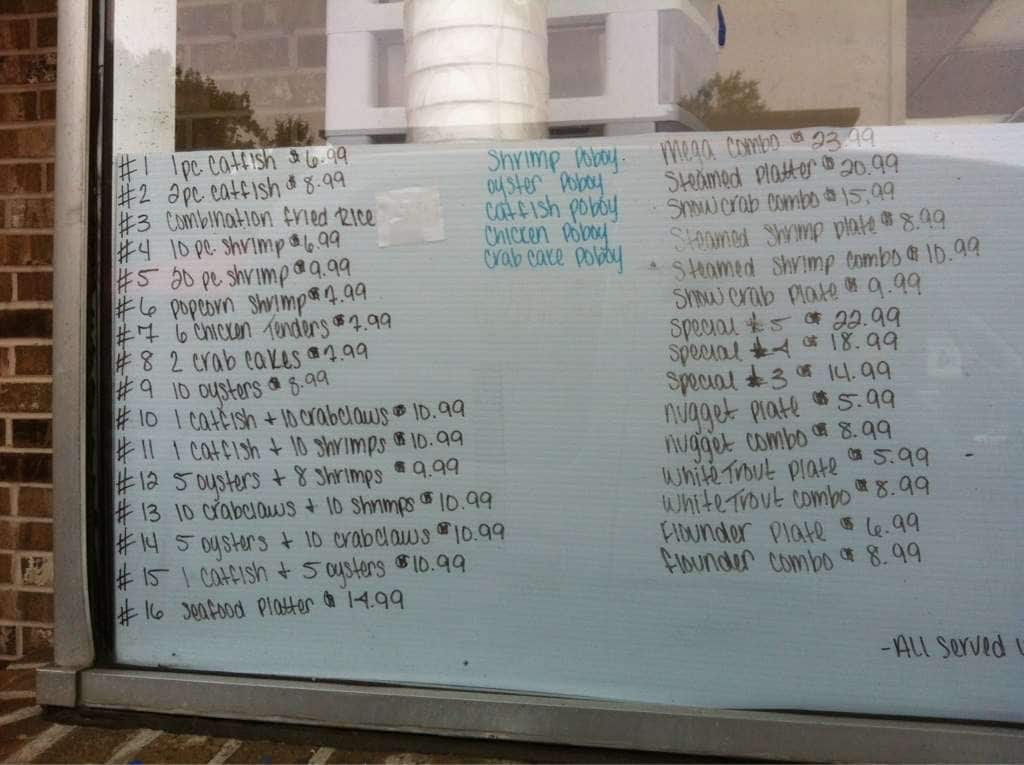 #1 1pc. catfish $6.99
#2 2pc. catfish $8.99
#3 combination fried rice
#4 10 pc. shrimp $6.99
#5 20 pc. shrimp $9.99
#6 popcorn shrimp $7.99
#7 6 chicken Tenders $7.99
#8 2 crab cakes $7.99
#9 10 oysters $8.99
#10 1 catfish + 10 crabclaws $10.99
#11 1 catfish + 10 shrimps $10.99
#12 5 oysters + 8 shrimps $9.99
#13 10 crabclaws + 10 shrimps $10.99
#14 5 oysters + 10 crabclaws $10.99
#15 1 catfish + 5 oysters $10.99
#16 seafood platter $14.99
Shrimp Poboy.
oyster Poboy
catfish poboy
Chicken Poboy
crab cake poboy
Mega combo $23.99
Steamed platter $20.99
Snowcrab combo $15.99
Steamed shrimp plate $8.99
Steamed shrimp combo $10.99
Snowcrab plate $9.99
Special #5 $22.99
Special #4 $18.99
Special #3 $14.99
nugget plate $5.99
nugget combo $8.99
White Trout plate $5.99
White Trout combo $8.99
Flounder Plate $6.99
flounder combo $8.99
-All served